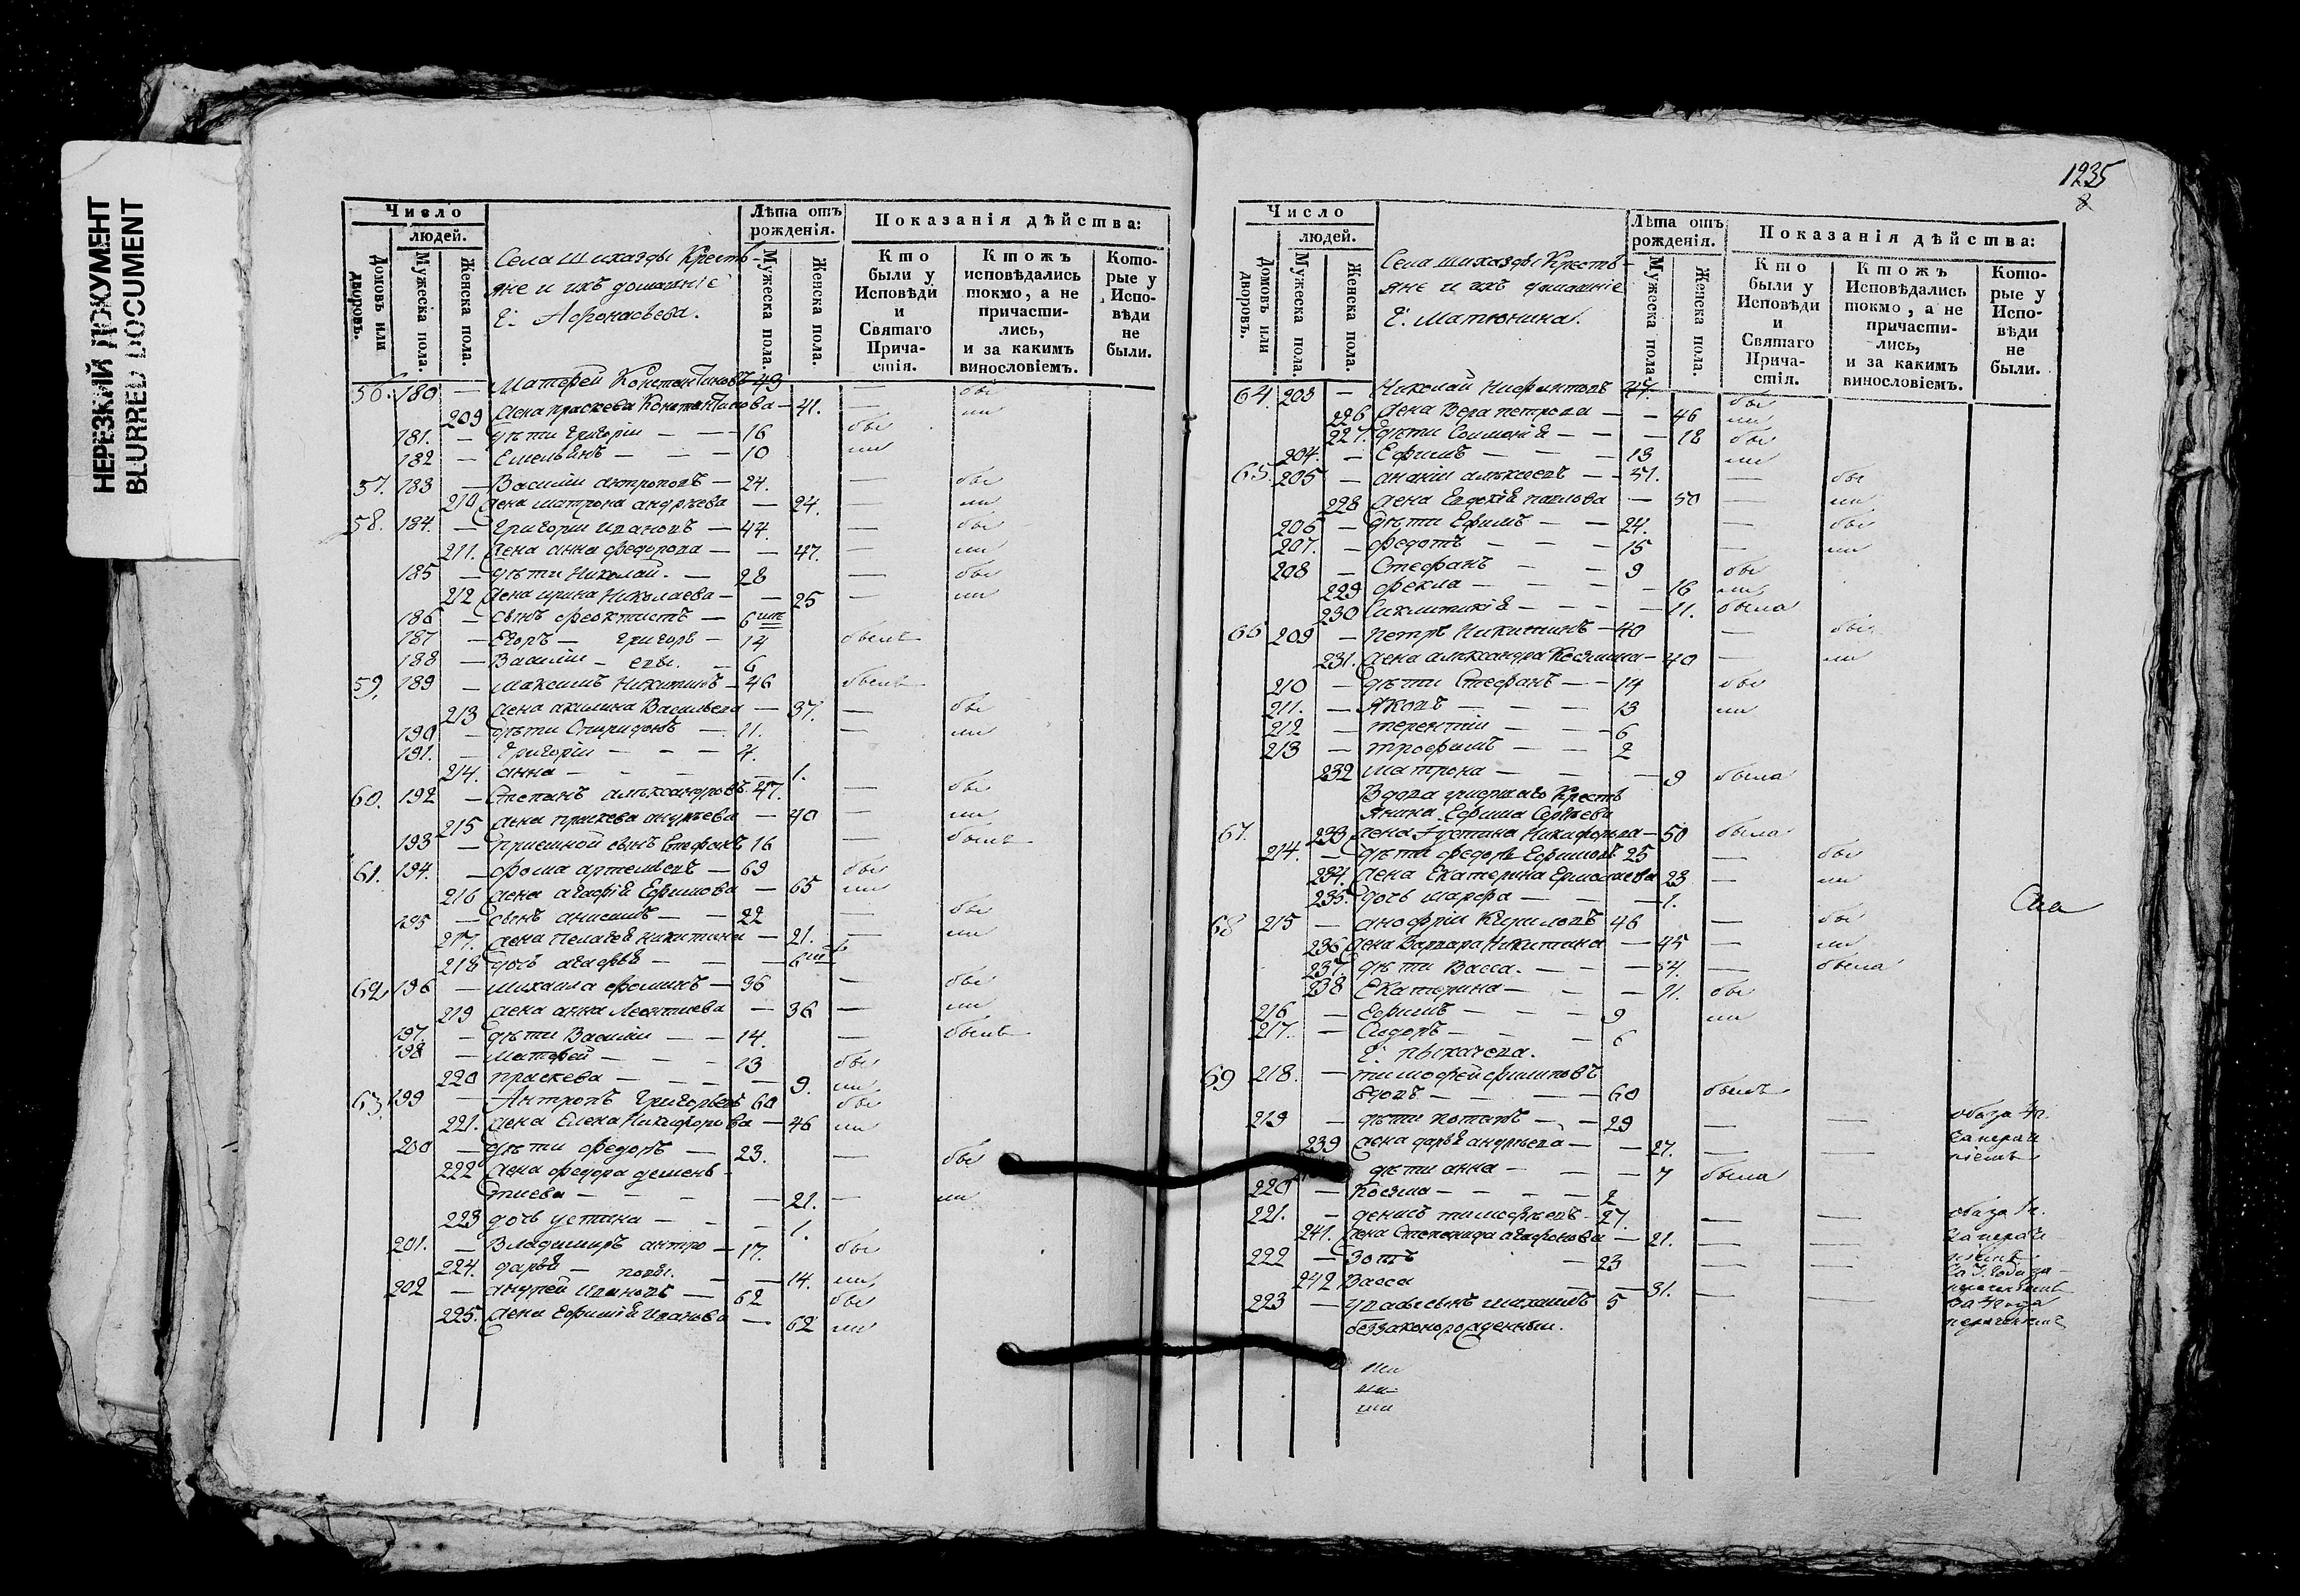 НЕРЕЗКИЙ ДОКУМЕНТ
BLURRED DOCUMENT
Число
людей.
Домовъ или дворовъ.
Мужеска пола.
Женска пола.
Села Шихазды Кресть-
яне и ихъ домашніе
Г: Афонасьева.
Лѣта отъ рожденія.
Мужеска пола.
Женска пола.
Показанія дѣйства:
Кто были у Исповѣди и Святаго Прича-стія.
Ктожъ исповѣдались токмо, а не причасти-лись, и за какимъ винословіемъ.
Кото-рые у Испо-вѣди не были.
56. 180 — Матфей Константиновъ 49 — бы
209 жена праскева Константинова — 41. — ли
181. — дѣти Григорій — — 16 бы
182 — Емельянъ — — 10 ли
57. 183 — Василій антроповъ — 24. — бы
210 жена матрона андрѣева — 24. — ли
58. 184. — Григорій ивановъ — 44. — бы
211. жена анна федорова — — 47. — ли
185 — дѣти Николай. — 28 — бы
212 жена ирина Николаева — — 25 — ли
186 — сынъ феоктистъ — 6
187 — Егоръ — Григорь — 14 былъ
188 — Василій — — 6
59. 189 — Максимъ Никитинъ — 46 былъ
213 жена акилина Васильева — 37. — бы
190 — дѣти Спиридонъ — 11. — ли
191. — Григорій — — — 4.
214. анна — — — — 1.
60. 192 — Степанъ александровъ. 47. — бы
215 жена праскева андрѣева — 40 — ли
193 — приемной сынъ Стефанъ 16 — былъ
61. 194. — фома артемьевъ — 69 бы
216 жена агафія Ефимова — 65 ли
195 — сынъ анисимъ — — 22 — бы
217. жена Пелагея никитина — 21. — ли
218 дочь агафья — — — 6
62. 196 — михаила фоминъ — 36 — бы
219 жена анна Леонтиева — 36 — ли
197. — дѣти Василій — — 14. — былъ
198 — матфей — — — 13 бы
220 праскева — — — — 9. ли
63. 199 — Антропъ Григорьевъ 60 бы
221. жена Елена Никифорова — 46 ли
200 — дѣти федоръ — 23. — бы
222 жена федора демень-
тиева — — — — 21. — ли
223 дочь устина — — — 1.
201. — Владимиръ антро — 17. бы
224. дарья — — — 14. ли
202 — андрей ивановъ — 62 бы
225. жена Ефимія иванова — 62 ли
1235
8
Число
людей.
Домовъ или дворовъ.
Мужеска пола.
Женска пола.
Села шихазды Кресть-
яне и ихъ домашніе
Г: Матюнина.
Лѣта отъ рожденія.
Мужеска пола.
Женска пола.
Показанія дѣйства:
Кто были у Исповѣди и Святаго Прича-стія.
Ктожъ Исповѣдались токмо, а не причасти-лись, и за какимъ винословіемъ.
Кото-рые у Испо-вѣди не были.
64. 203 — Николай Нифантовъ 47. бы
226 жена Вера петрова — — 46 ли
227. дѣти Соломонія — — — 18 бы
204. — Ефимъ — — — 13 ли
65. 205 — ананій алексеевъ — 51. — бы
228 жена Евдокія павлова — 50 — ли
206 — дѣти Ефимъ — — 24. — бы
207. — федотъ — — — 15 — ли
208 — Стефанъ — — 9 бы
229 фекла — — — — 16 ли
230 Сиклитикія — — — 11. была
66 209 — петръ Никитинъ — 40 — бы
231. жена александра Козмина — 40 — ли
210 — дѣти Стефанъ — — 14 бы
211. — Яковъ — — — 13 ли
212 — терентій — — — 6
213 — трофимъ — — 2
232 матрона — — — 9 была
Вдова умершаго Кресть
янина Ефима Сергѣева
67. 233 жена Густина Никифорова — 50 была
214. — дѣти федоръ Ефимовъ 25 — бы
234. жена Екатерина Ермолаева 23 — ли
235. дочь марфа — — — 1.
68 215 — анофрій Кириловъ 46 — бы
236 жена Варвара Никитина — 45 — ли
237. дѣти Васса. — — — 14. — была
238 Екатерина — — — 11. бы
216 — Ефимъ — — — 9 ли
217. — Сидоръ — — — 6
Г: пыхачева.
69 218. — тимофей филиповъ
вдовъ — — — 60 былъ
219 — дѣти потапъ — — 29 — —
239 жена дарья андрѣева — — 27. — —
дѣти анна — — — 7 была
220 — Козма — — — — 2
221. — денисъ тимофѣевъ — 27. — —
241. жена Степанида агафонова — 21. — —
222 — Зотъ — 23 — —
242 Васса — 31. — —
223 — сынъ михаилъ 5
беззаконорожденный.